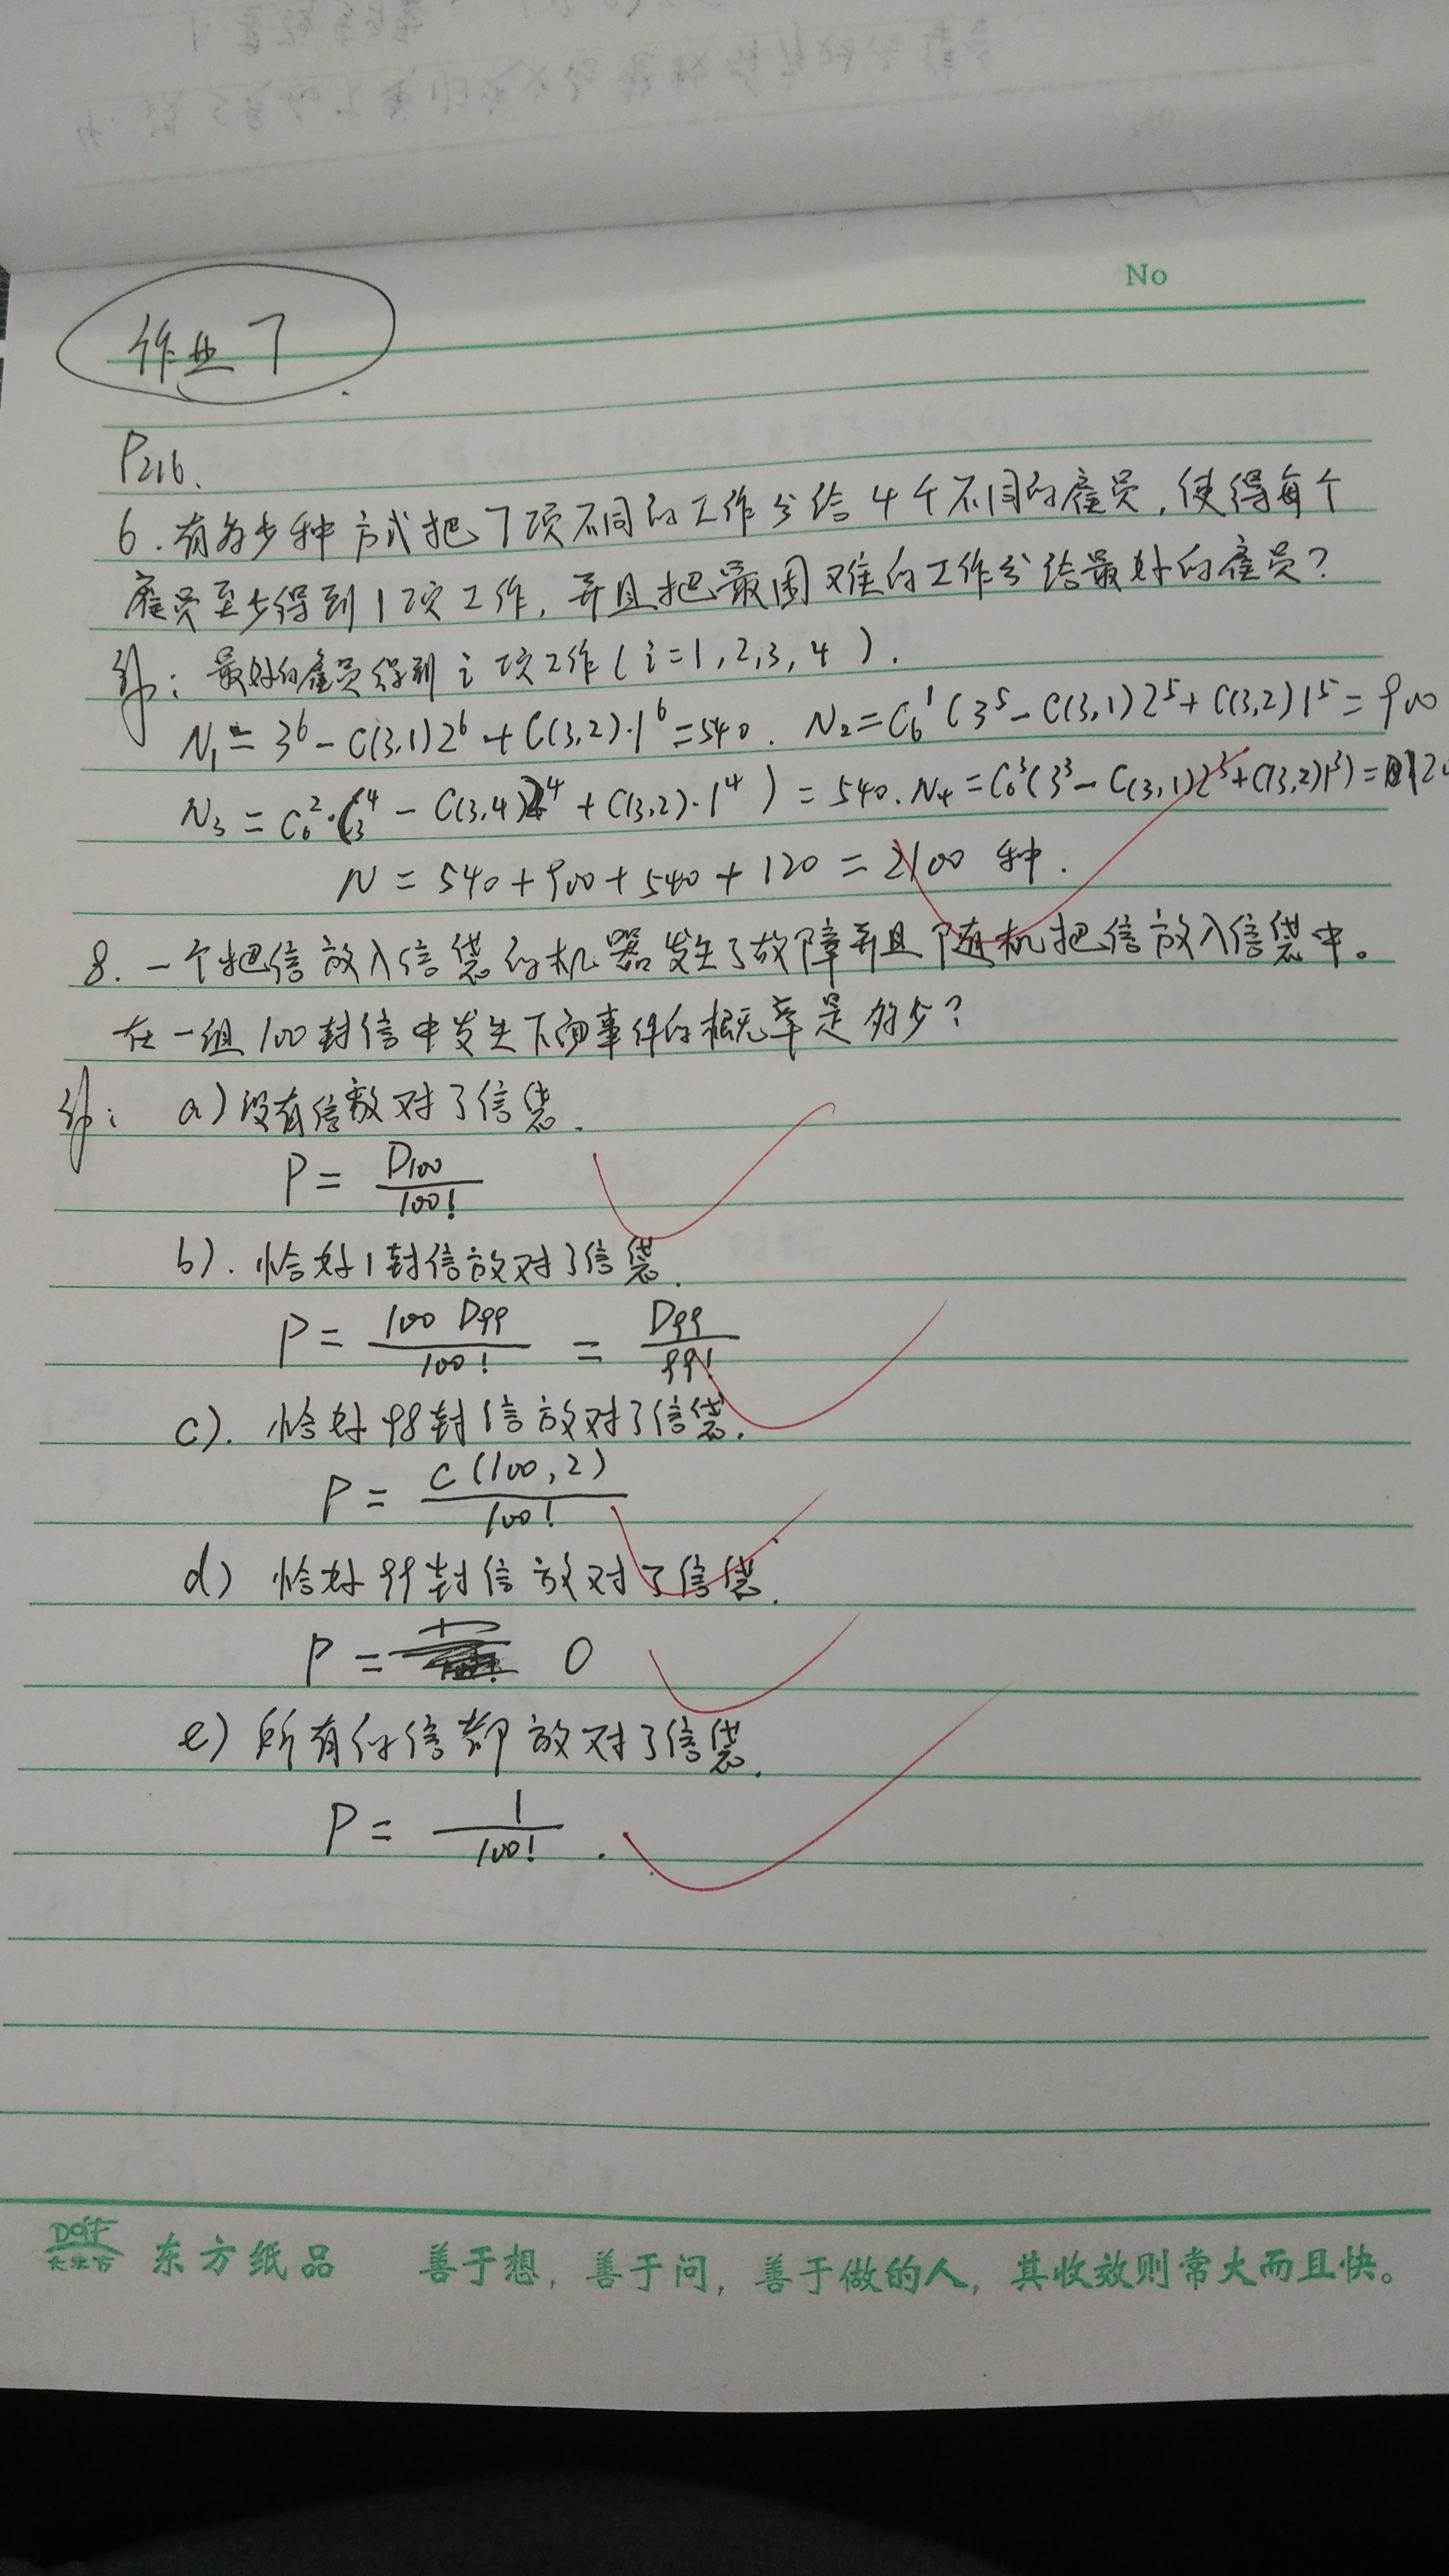 No
作业7
P216.
6.有多少种方式把7项不同的工作分给4个不同的雇员,使得每个
雇员至少得到1项工作,并且把最困难的工作分给最好的雇员?
解:最好的雇员得到i项工作(i=1,2,3,4).
N₁=3⁶-C(3,1)2⁶+C(3,2)·1⁶=540. N₂=C₆¹(3⁵-C(3,1)2⁵+C(3,2)1⁵=900
N₃=C₆²·(3⁴-C(3,4)2⁴+C(3,2)·1⁴)=540. N₄=C₆³(3³-C(3,1)2³+C(3,2)1³)=120
N=540+900+540+120=2100 种.
8.一个把信放入信袋的机器发生了故障并且随机把信放入信袋中。
在一组100封信中发生下面事件的概率是多少?
解: a)没有信放对了信袋.
P=D₁₀₀/100!
b).恰好1封信放对了信袋.
P=100 D₉₉/100! = D₉₉/99!
c).恰好98封信放对了信袋.
P=C(100,2)/100!
d)恰好99封信放对了信袋.
P= 0
e)所有的信都放对了信袋.
P=1/100!.
东方纸品 善于想,善于问,善于做的人,其收效则常大而且快。